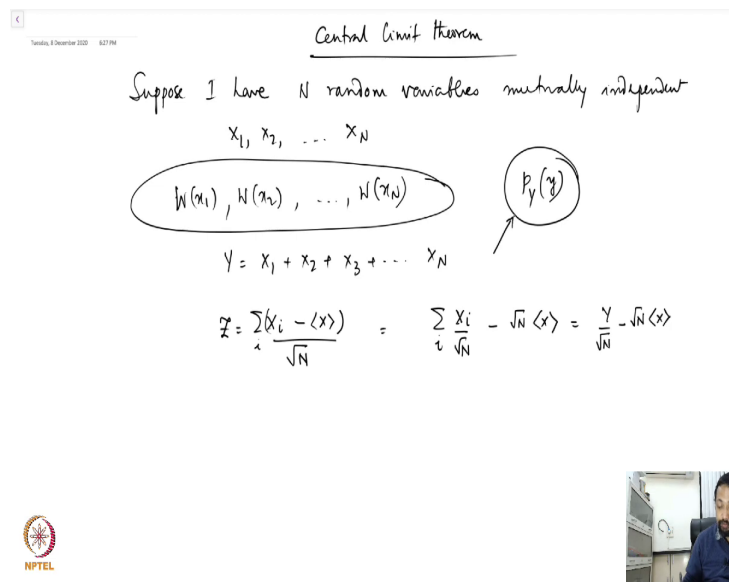 Tuesday, 8 December 2020 6:27 PM
Central limit theorem
Suppose I have N random variables mutually independent
X₁, X₂, ... X_N
W(x₁), W(x₂), ..., W(x_N)
P_Y(y)
Y = X₁ + X₂ + X₃ + ... X_N
Z = Σ_i (X_i - ⟨x⟩) / √N = Σ_i X_i / √N - √N ⟨x⟩ = Y / √N - √N ⟨x⟩
NPTEL